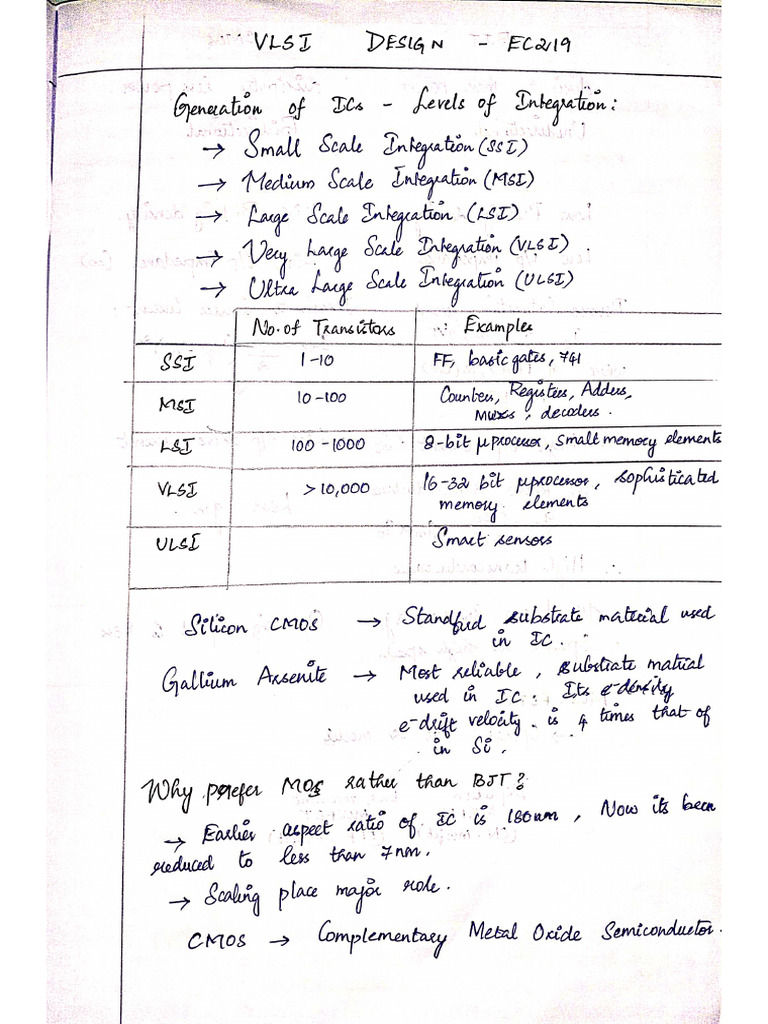 VLSI DESIGN - EC2119
Generation of ICs - Levels of Integration:
→ Small Scale Integration (SSI)
→ Medium Scale Integration (MSI)
→ Large Scale Integration (LSI)
→ Very Large Scale Integration (VLSI)
→ Ultra Large Scale Integration (ULSI)
No. of Transistors Examples
SSI 1-10 FF, basic gates, 741
MSI 10-100 Counters, Registers, Adders,
Muxs, decoders.
LSI 100-1000 8-bit μprocesor, small memory elements
VLSI >10,000 16-32 bit μprocessor, sophisticated
memory elements
ULSI Smart sensors
Silicon CMOS → substrate material used
in IC.
Gallium Arsenite → Most reliable, substrate matrial
used in IC. Its e-density
e-drift velocity is 4 times that of
in Si.
Why prefer MOS rather than BJT?
→ Earlier aspect ratio of IC is 180nm, Now its been
reduced to less than 7nm.
→ Scaling place major role.
CMOS → Complementary Metal Oxide Semiconductor.